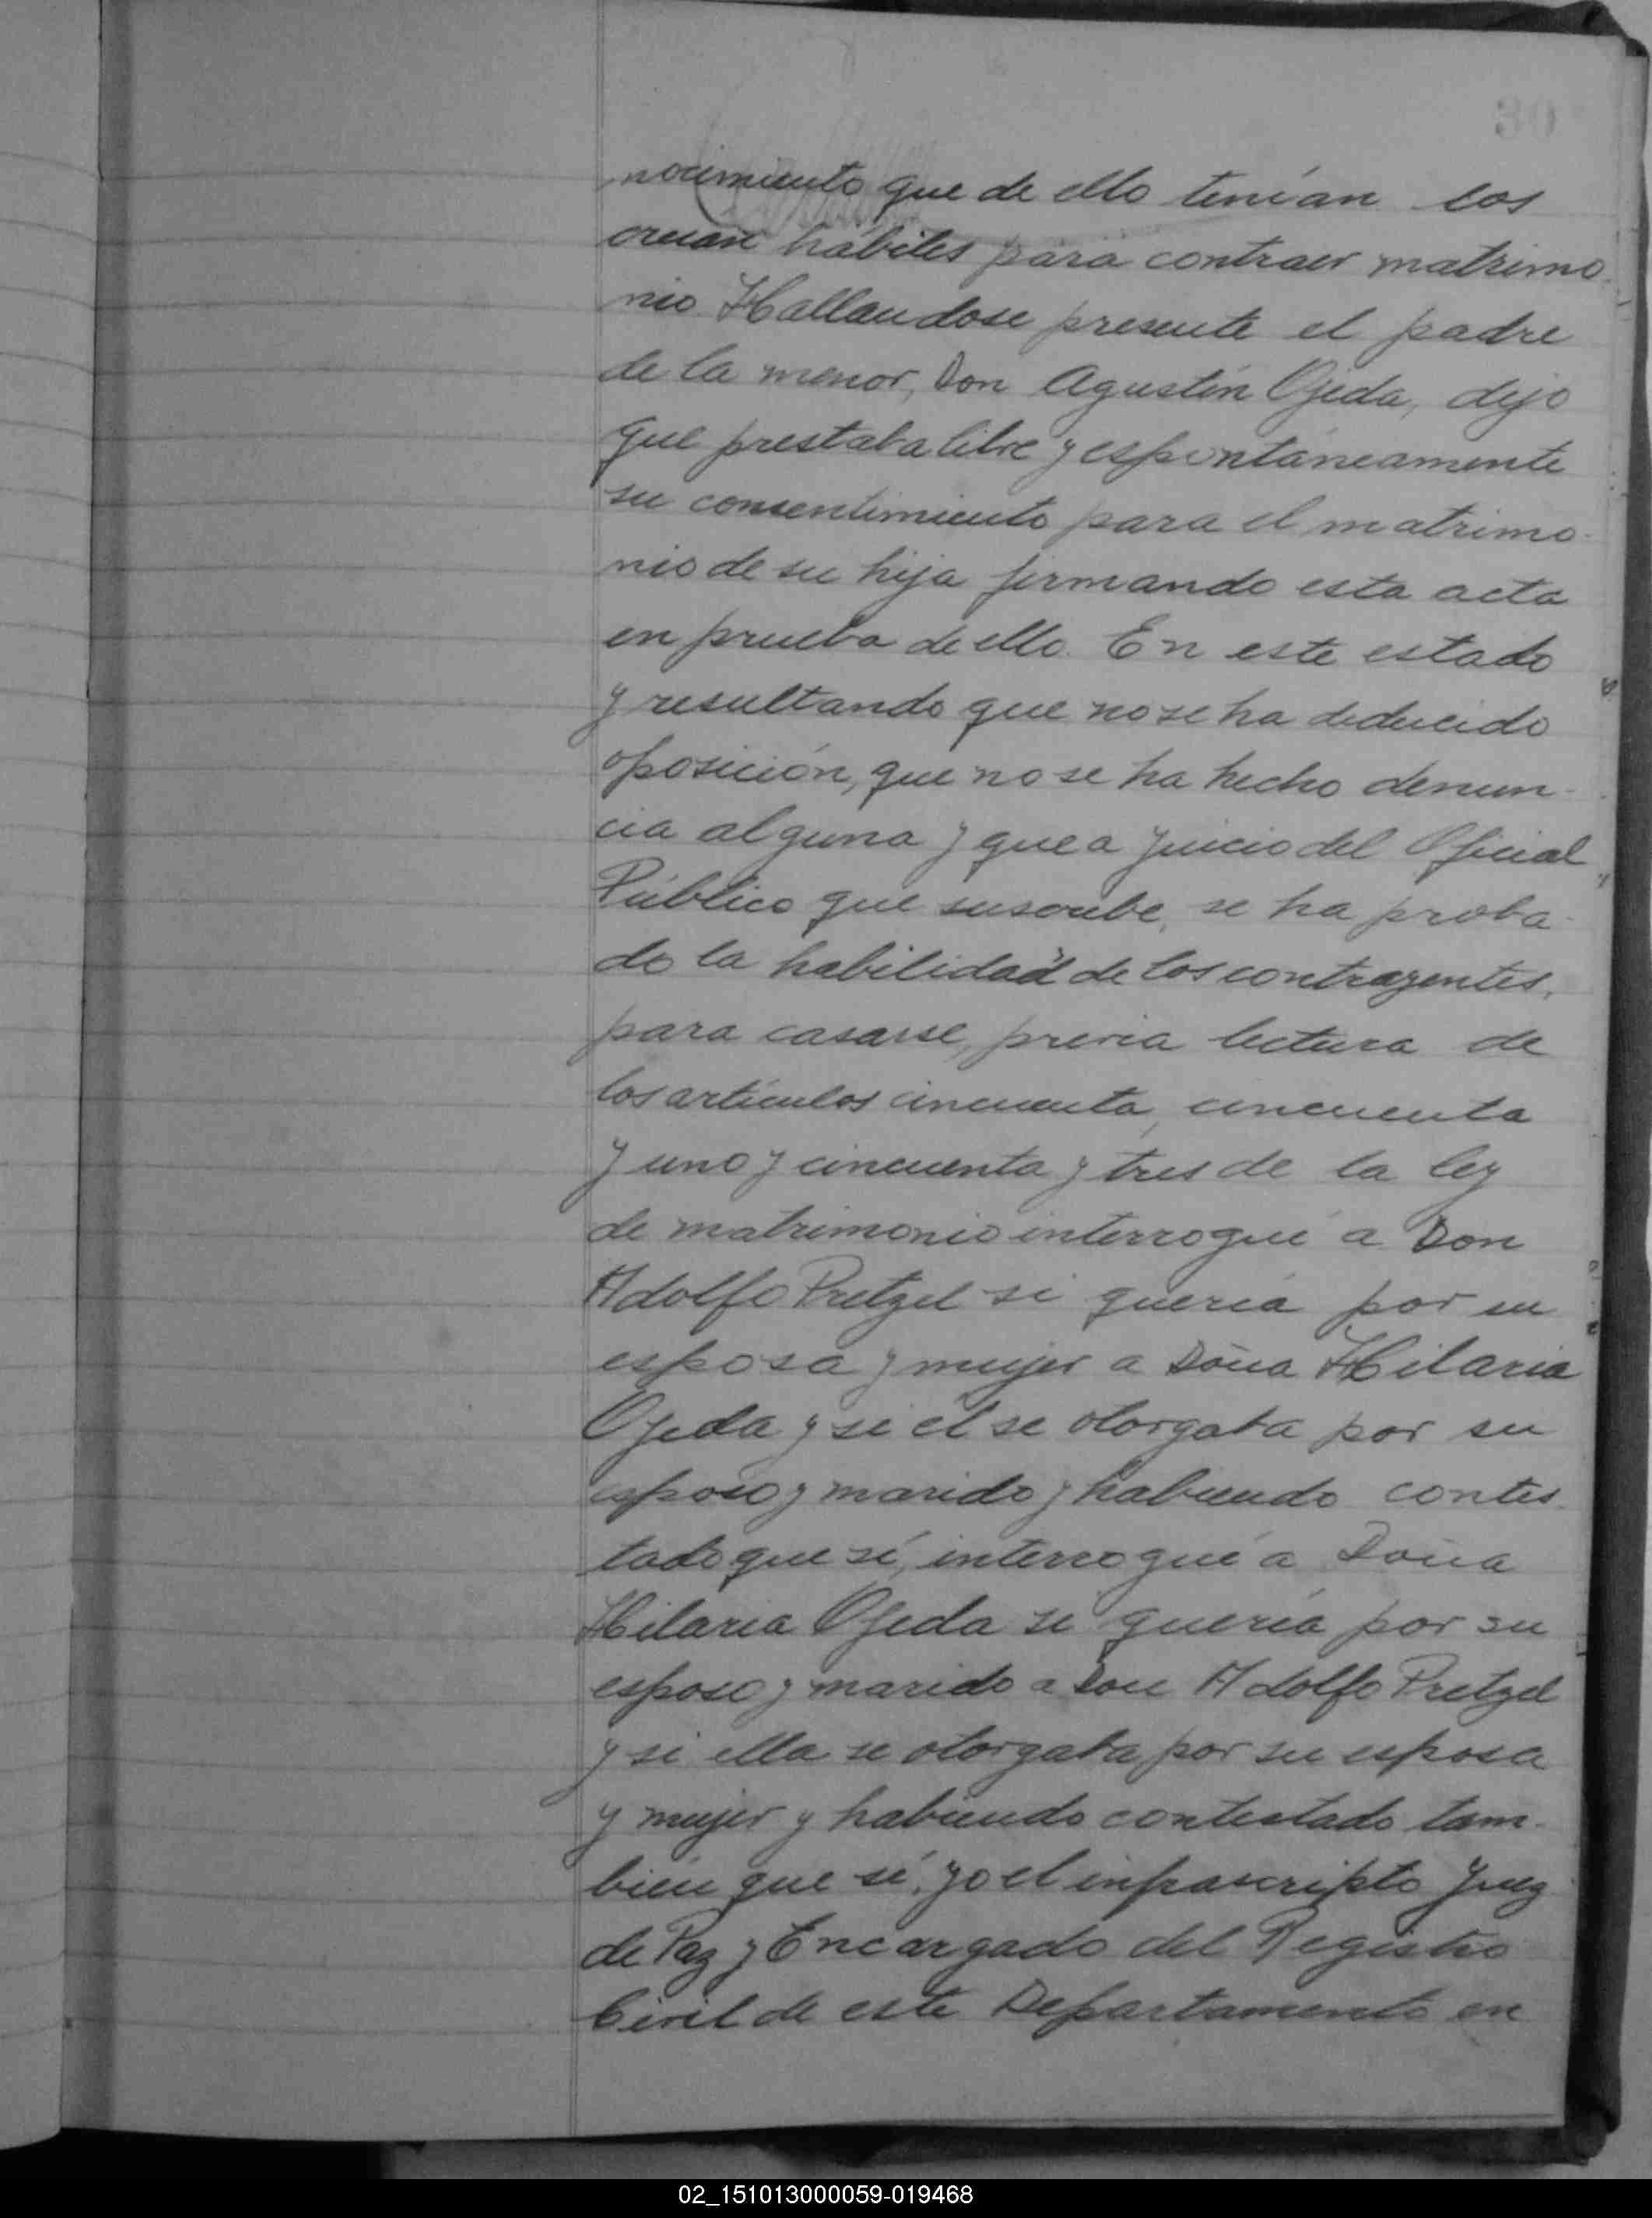 nocimiento que de ello tenían los
creian hábiles para contraer matrimo
nio Hallandose presente el padre
de la menor, Don Agustín Ojeda, dijo
que prestaba libre y espontáneamente
su consentimiento para el matrimo-
nio de su hija firmando esta acta
en prueba de ello. En este estado
y resultando que no se ha deducido
oposición, que no se ha hecho denun-
cia alguna y que a juicio del Oficial
Público que suscribe, se ha proba-
do la habilidad de los contrayentes,
para casarse, previa lectura de
los artículos cincuenta, cincuenta
y uno y cincuenta y tres de la ley
de matrimonio interrogué a Don
Adolfo Pretzel si quería por su
esposa y mujer a Doña Hilaria
Ojeda y si él se otorgaba por su
esposo y marido y habiendo contes
tado que sí, interrogué a Doña
Hilaria Ojeda si quería por su
esposo y marido a Don Adolfo Pretzel
y si ella se otorgaba por su esposa
y mujer y habiendo contestado tam-
bién que sí, yo el infrascripto Juez
de Paz y Encargado del Registro
Civil de este Departamento en
02_151013000059-019468